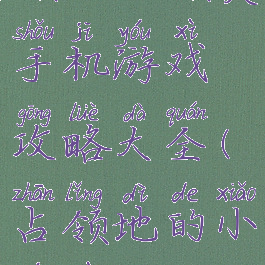 shǒu jī yóu xì
手机游戏
gōng lüè dà quán
攻略大全(
zhān lǐng dì de xiǎo
占领地的小